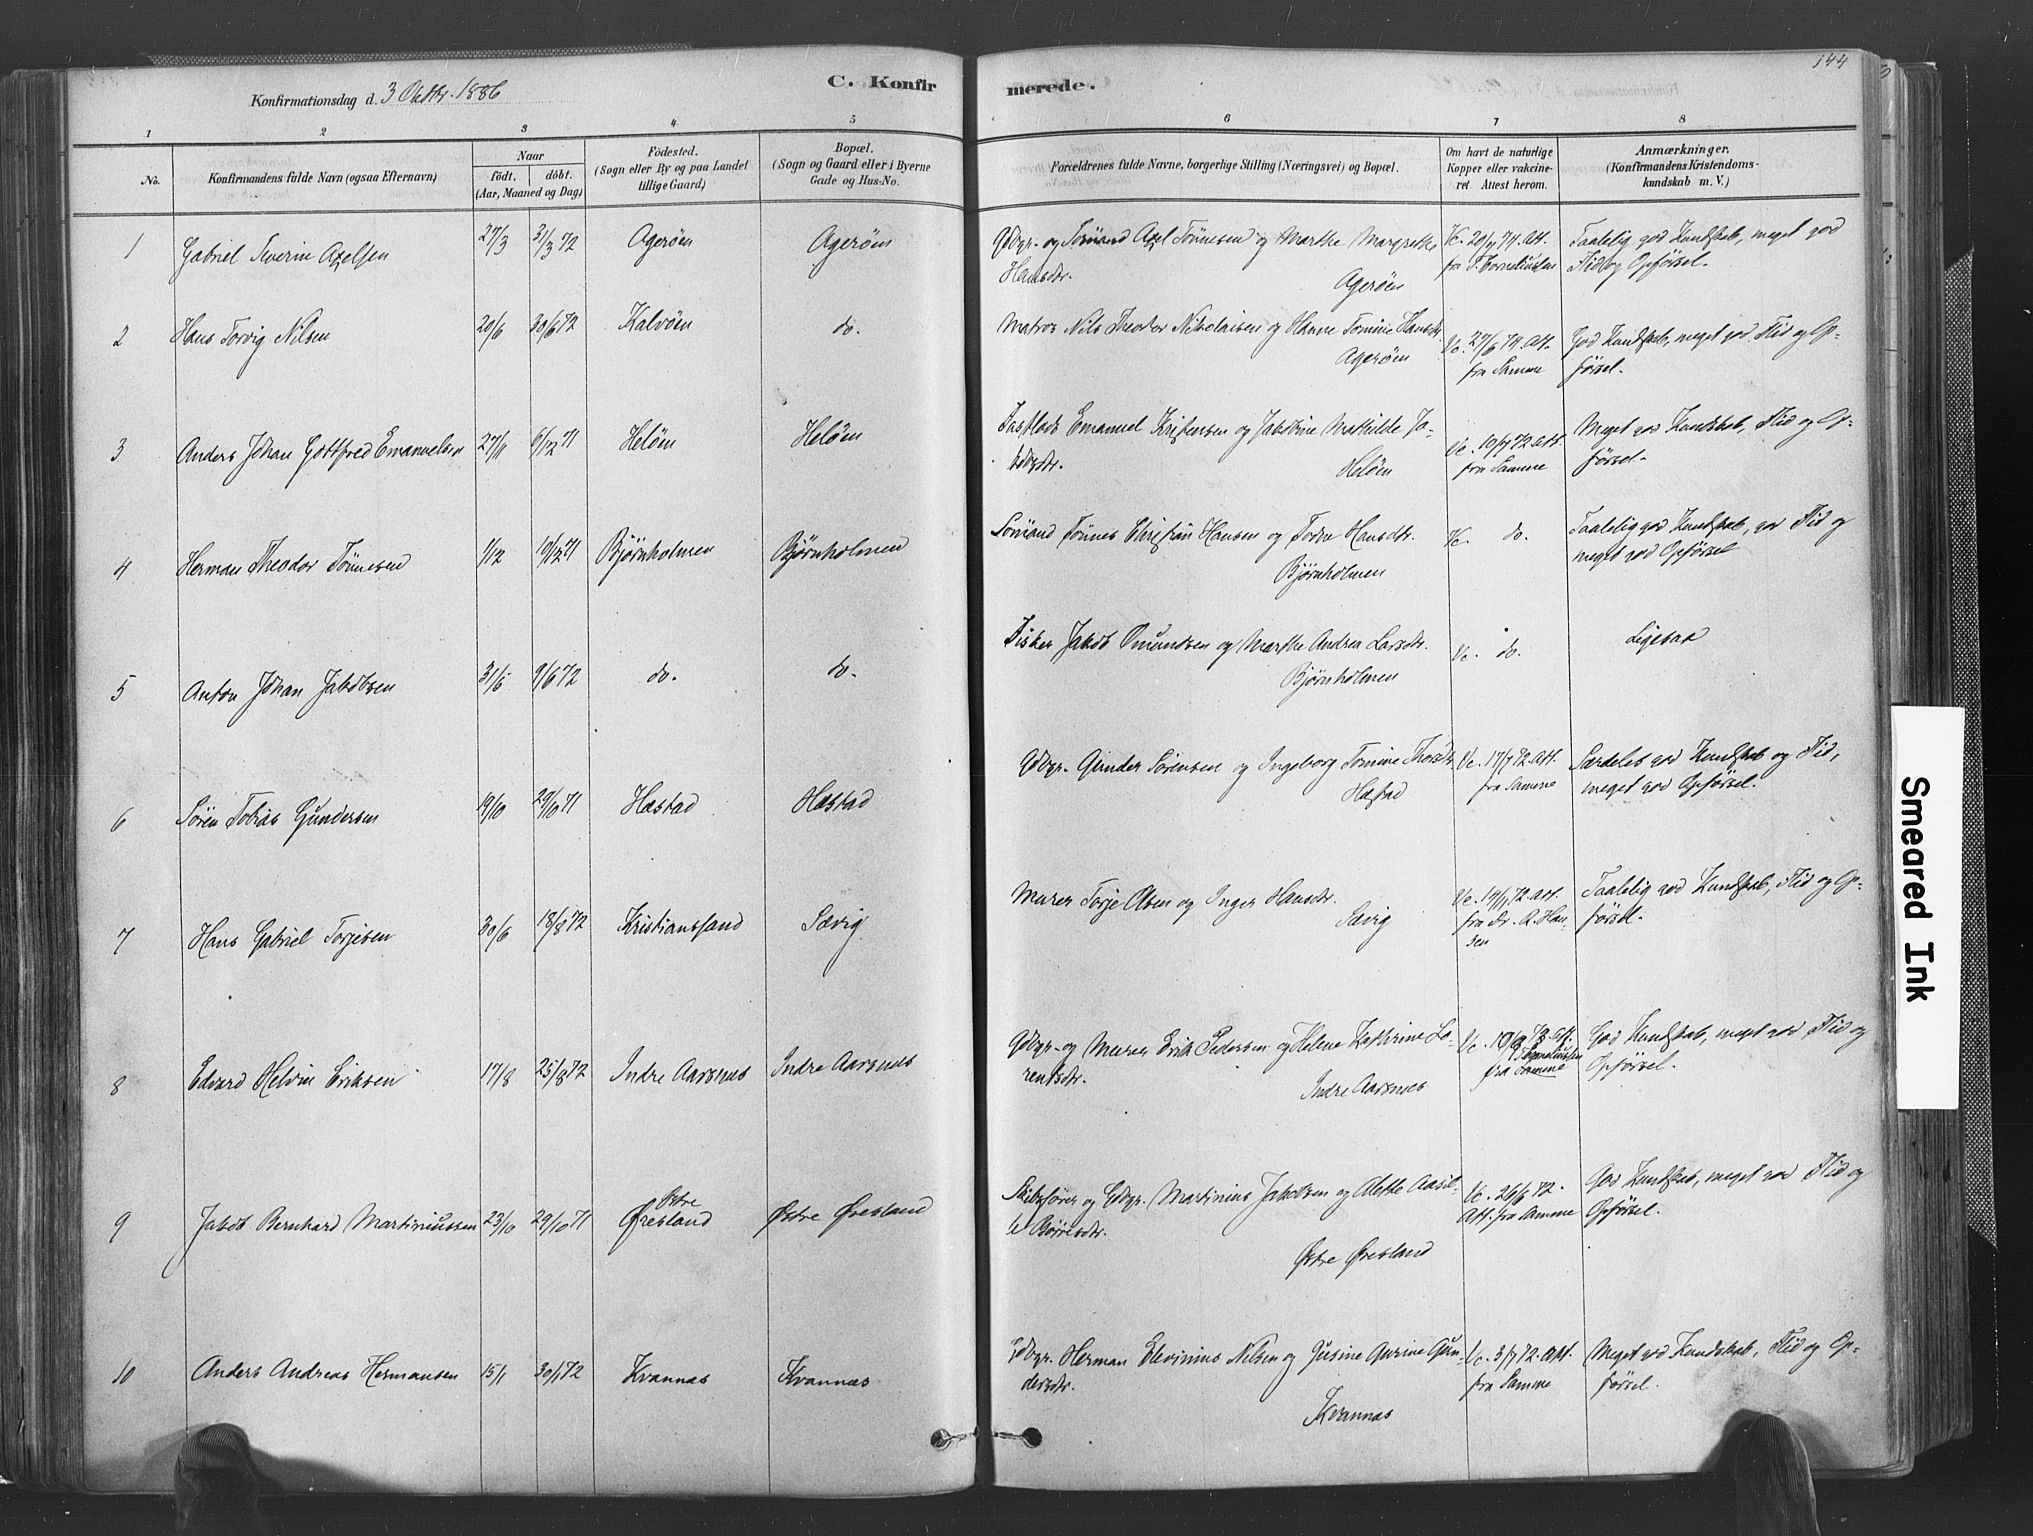 144
Konfirmationsdag d. 3 Oktbr. 1886
C. Konfir
merede.
1 2 3 4 5 6 7 8
No.
Konfirmandens fulde Navn (ogsaa Efternavn)
Naar
födt. döbt.
(Aar, Maaned og Dag)
Födested.
(Sogn eller By og paa Landet
tillige Gaard)
Bopæl.
(Sogn og Gaard eller i Byerne
Gade og Hus-No.
Forældrenes fulde Navne, borgerlige Stilling (Næringsvei) og Bopæl.
Om havt de naturlige
Kopper eller vakcine-
ret. Attest herom.
Anmærkninger.
(Konfirmandens Kristendoms-
kundskab m. V.)
1 Gabriel Severin Axelsen 27/3 31/3 72 Agerøen Agerøen
Gdbgr. og Sømand Axel Tönnesen og Marthe Margrethe
Hansdtr.
Agerøen
Vc. 20/7 74. Att.
fra S. Corneliussen
Taalelig god Kundskab, meget god
Flid og Opførsel.
2 Hans Torvig Nilsen 20/6 30/6 72 Kalvøen do.
Matros Nils Theodor Nikolaisen og Hanne Tomine Hansdtr.
Agerøen
Vc. 27/6 74. Att.
fra Samme
God Kundskab, meget god Flid og Op-
førsel.
3 Anders Johan Gottfred Emanuelsen 27/11 6/12 71 Heløen Heløen
Emanuel Kristensen og Jakobine Mathilde Ja-
kobsdtr.
Heløen
Vc. 10/7 72. Att.
fra Samme
Meget god Kundskab, Flid og Op-
førsel.
4 Herman Theodor Tönnesen 1/12 10/12 71 Bjørnholmen Bjørnholmen
Sømand Tönnes Christian Hansen og Hansdtr.
Bjørnholmen
Vc. do.
Taalelig god Kundskab, god Flid og
meget god Opførsel
5 Anton Johan Jakobsen 31/5 9/6 72 do. do.
Fisker Jakob Omundsen og Marthe Andrea Larsdtr.
Bjørnholmen
Vc. do.
Ligesaa
6 Sören Tobias Gundersen 19/10 29/10 71 Hæstad Hæstad
Gdbgr. Gunder Sörensen og Ingeborg Tomine Thorsdtr.
Hæstad
Vc. 17/7 72. Att.
fra Samme
Særdeles god Kundskab og Flid,
meget god Opførsel.
7 Hans Gabriel Torjesen 30/6 18/8 72 Kristianssand Sævig
Murer Torje Olsen og Inger Hansdtr.
Sævig
Vc. 14/9 72. Att.
fra Dr. A. Han-
sen
Taalelig god Kundskab, Flid og Op-
førsel.
8 Edvard Helvin Eriksen 17/8 25/8 72 Indre Aarsnes Indre Aarsnes
Gdbgr. og Murer Erik Pedersen og Helene Kathrine Lo-
rentsdtr.
Indre Aarsnes
Vc. 10/9 73. Att.
S. Corneliussen
fra Samme
God Kundskab, meget god Flid og
Opførsel.
9 Jakob Bernhard Martiniussen 23/10 29/10 71 Østre Øresland Østre Øresland
Skibsfører og Gdbgr. Martinius Jakobsen og Alette Aasil-
le Börresdtr.
Østre Øresland
Vc. 26/6 72.
Att. fra Samme
God Kundskab, meget god Flid og
Opførsel.
10 Anders Andreas Hermansen 15/1 30/1 72 Kvannes Kvannes
Gdbgr. Herman Elevinius Nilsen og Jusine Gurine Gun-
dersdtr.
Kvannes
Vc. 3/7 72. Att.
fra Samme
Meget god Kundskab, Flid og Op-
førsel.
Smeared Ink